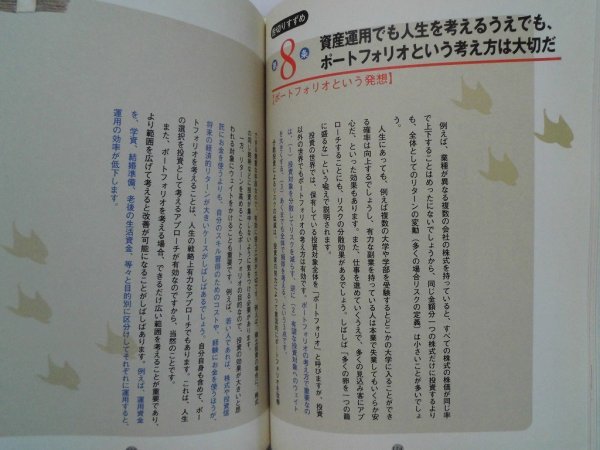 舌切りすずめ
第8条
資産運用でも人生を考えるうえでも、
ポートフォリオという考え方は大切だ
【ポートフォリオという発想】
例えば、業種が異なる複数の会社の株式を持っていると、すべての株式の株価が同じ率
で上下することはめったにないでしょうから、同じ金額分一つの株式だけに投資するより
も、全体としてのリターンの変動（多くの場合リスクの定義）は小さいことが多いでしょ
う。
人生にあっても、例えば複数の大学や学部を受験するとどこかの大学に入ることができ
る確率は向上するでしょうし、有力な副業を持っている人は本業で失業してもいくらか安
心だ、といった効果もあります。また、仕事を進めていくうえで、多くの見込み客にアプ
ローチすることにも、リスクの分散効果があるでしょう。しばしば「多くの卵を一つの籠
に盛るな」という喩えで説明されます。
投資の世界では、保有している投資対象全体を「ポートフォリオ」と呼びますが、投資
以外の世界でもポートフォリオの考え方は有効です。ポートフォリオの考え方で重要なの
は、（1）投資対象を分散してリスクを減らす、逆に（2）有望な投資対象へのウェイト
一方、リターンを高めることもポートフォリオの目的なので、投資の効果が大きいと思
われる対象にウェイトをかけることも重要です。例えば、若い人であれば、株式や投資信
託にお金を使うよりも、自分のスキル習得のためのコストや、経験にお金を使うほうが、
将来の経済的リターンが大きいケースがしばしばあるでしょう。自分自身も含めて、ポー
トフォリオを考えることは、人生の戦略上有力なアプローチでもあります。これは、人生
の選択を投資として考えるアプローチが有効なのですから、当然のことです。
また、ポートフォリオを考える場合、できるだけ広い範囲を考えることが重要であり、
より範囲を広げて考えると改善が可能になることがしばしばあります。例えば、運用資金
を、学資、結婚準備、老後の生活資金、等々と目的別に区分けしてそれぞれに運用すると、
運用の効率が低下します。